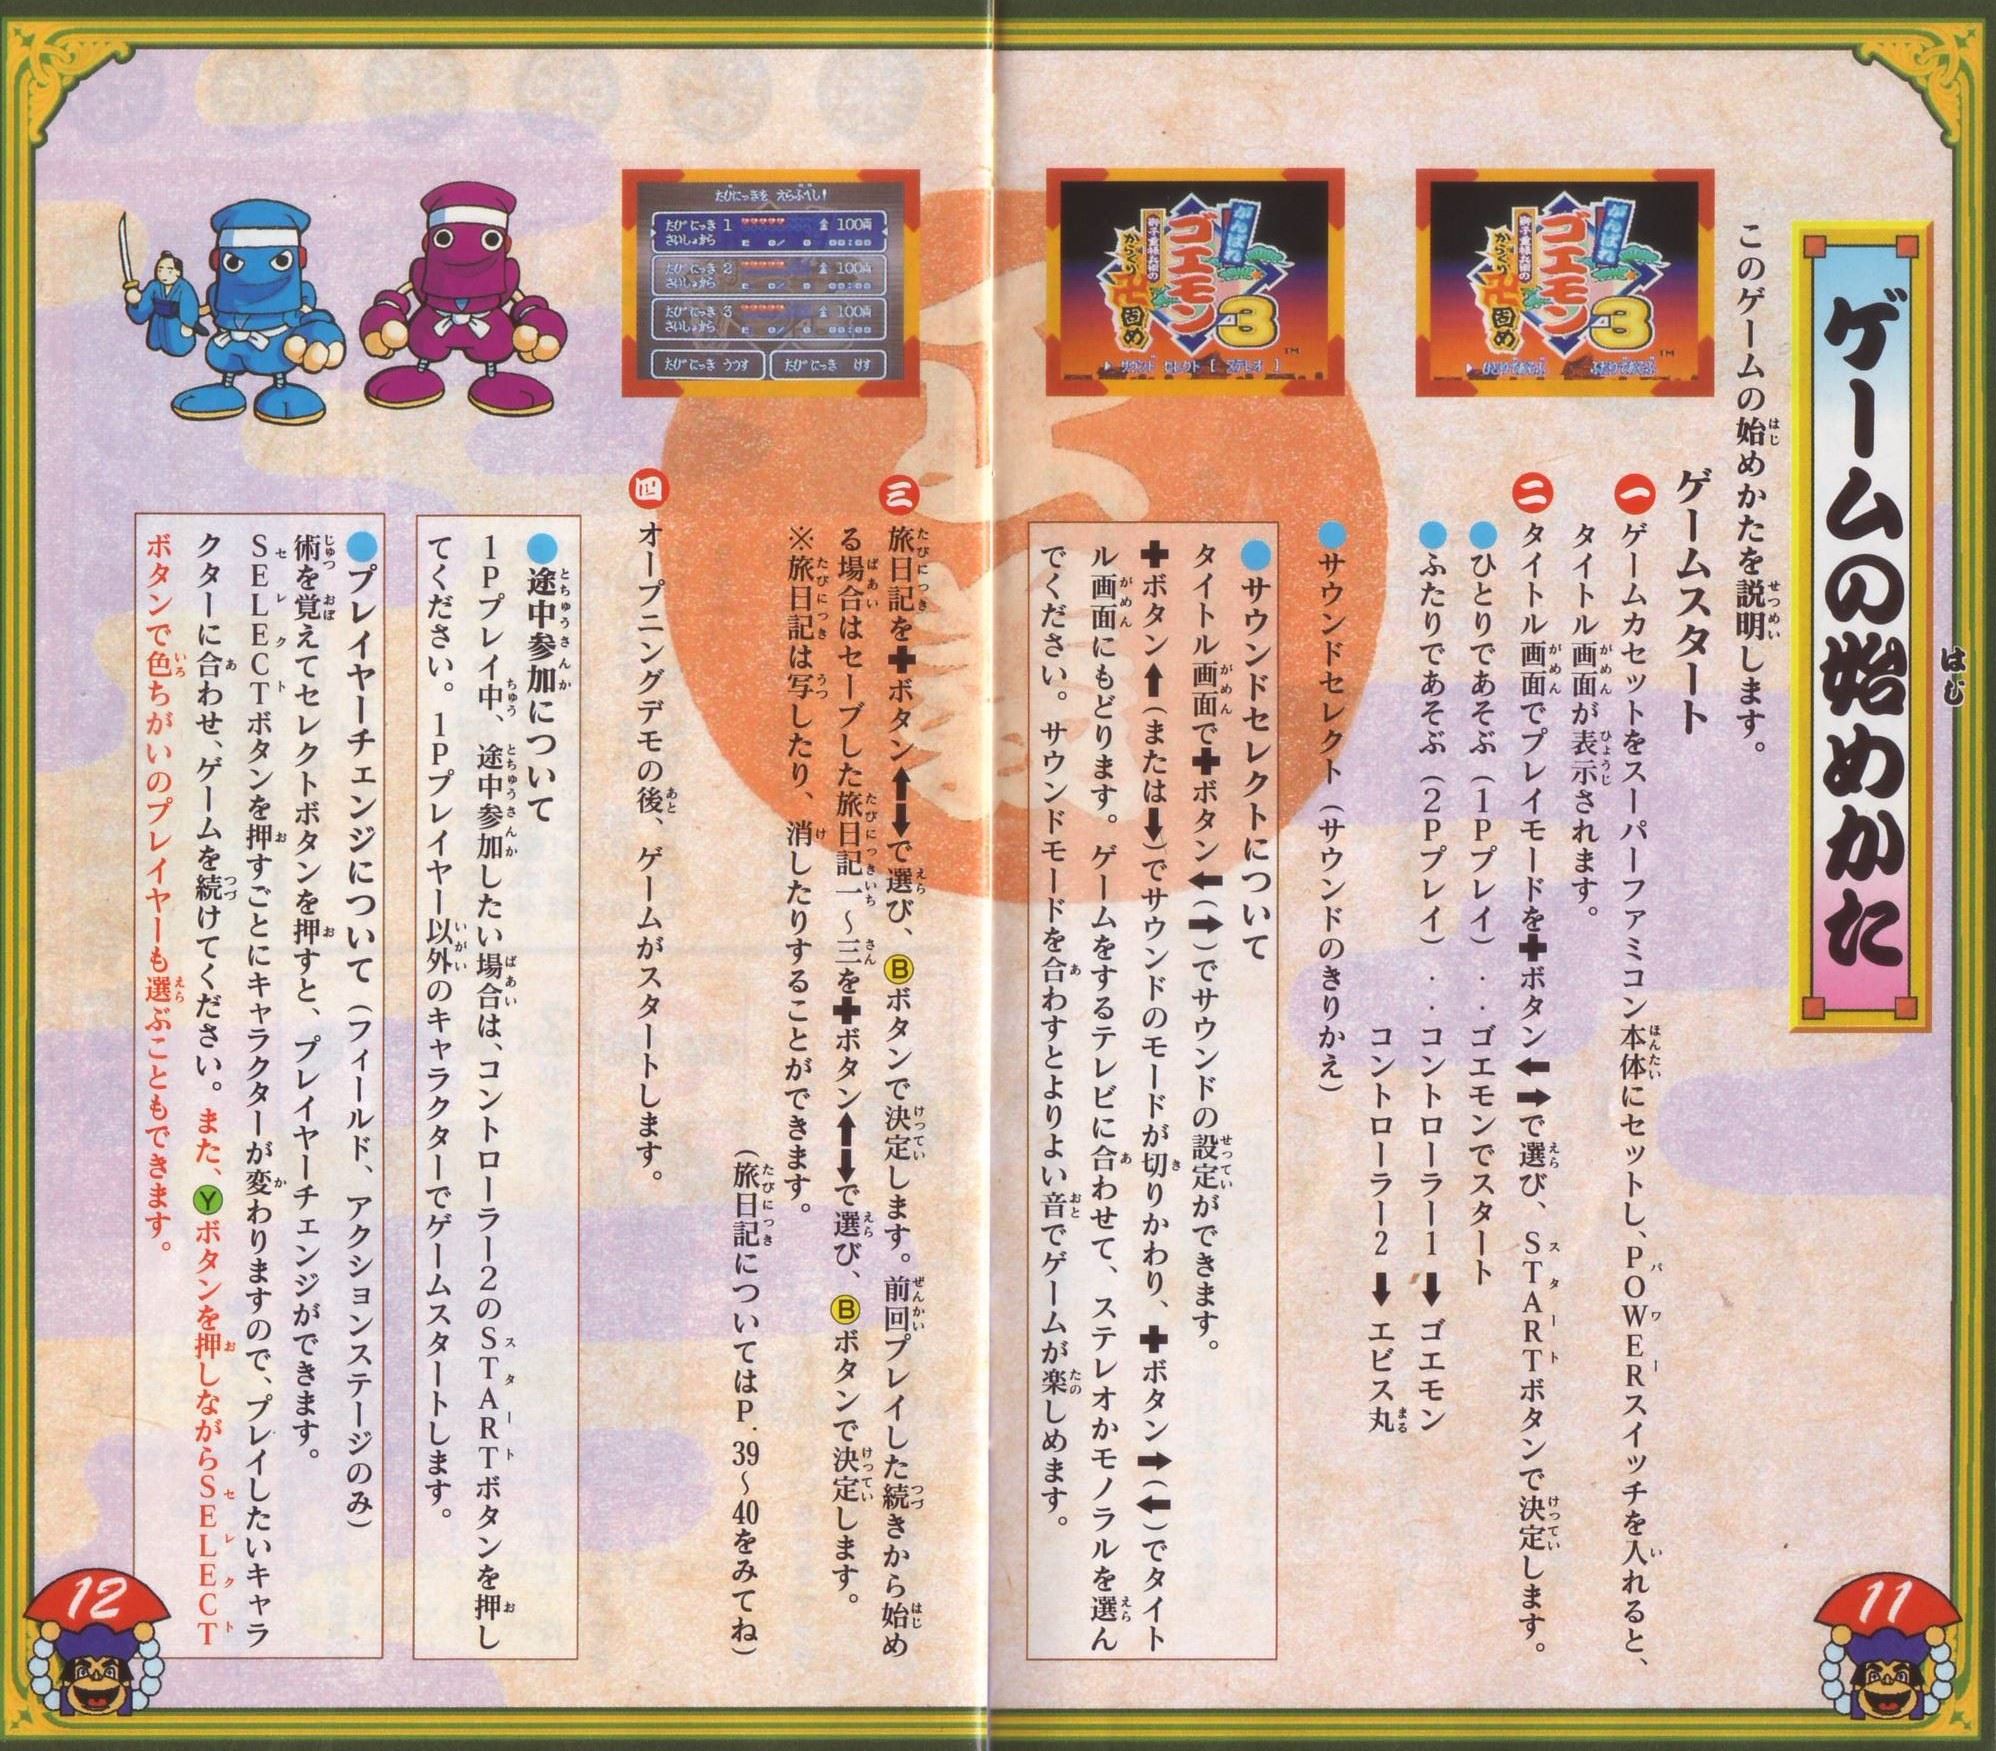 ゲームの始めかた
このゲームの始めかたを説明します。
ゲームスタート
一 ゲームカセットをスーパーファミコン本体にセットし、POWERスイッチを入れると、
タイトル画面が表示されます。
二 タイトル画面でプレイモードを✚ボタン⬅➡で選び、STARTボタンで決定します。
●ひとりであそぶ（1Pプレイ）‥ゴエモンでスタート
●ふたりであそぶ（2Pプレイ）‥コントローラー1➡ゴエモン
コントローラー2➡エビス丸
●サウンドセレクト（サウンドのきりかえ）
●サウンドセレクトについて
タイトル画面で✚ボタン⬅(➡)でサウンドの設定ができます。
✚ボタン⬆(または⬇)でサウンドのモードが切りかわり、✚ボタン➡(⬅)でタイト
ル画面にもどります。ゲームをするテレビに合わせて、ステレオかモノラルを選ん
でください。サウンドモードを合わすとよりよい音でゲームが楽しめます。
がんばれ
ゴエモン3
獅子重禄兵衛の
からくり
卍固め
TM
ひとりであそぶ ふたりであそぶ
がんばれ
ゴエモン3
獅子重禄兵衛の
からくり
卍固め
TM
サウンド セレクト [ ステレオ ]
11
三 旅日記を✚ボタン⬆⬇で選び、Ⓑボタンで決定します。前回プレイした続きから始め
る場合はセーブした旅日記一〜三を✚ボタン⬆⬇で選び、Ⓑボタンで決定します。
※旅日記は写したり、消したりすることができます。
（旅日記についてはP.39〜40をみてね）
四 オープニングデモの後、ゲームがスタートします。
●途中参加について
1Pプレイ中、途中参加したい場合は、コントローラー2のSTARTボタンを押し
てください。1Pプレイヤー以外のキャラクターでゲームスタートします。
●プレイヤーチェンジについて（フィールド、アクションステージのみ）
術を覚えてセレクトボタンを押すと、プレイヤーチェンジができます。
SELECTボタンを押すごとにキャラクターが変わりますので、プレイしたいキャラ
クターに合わせ、ゲームを続けてください。また、Ⓨボタンを押しながらSELECT
ボタンで色ちがいのプレイヤーも選ぶこともできます。
たびにっきを えらぶべし！
たびにっき 1 金 100両
さいしょから 0/ 0 00:00
たびにっき 2 金 100両
さいしょから 0/ 0 00:00
たびにっき 3 金 100両
さいしょから 0/ 0 00:00
たびにっき うつす たびにっき けす
12